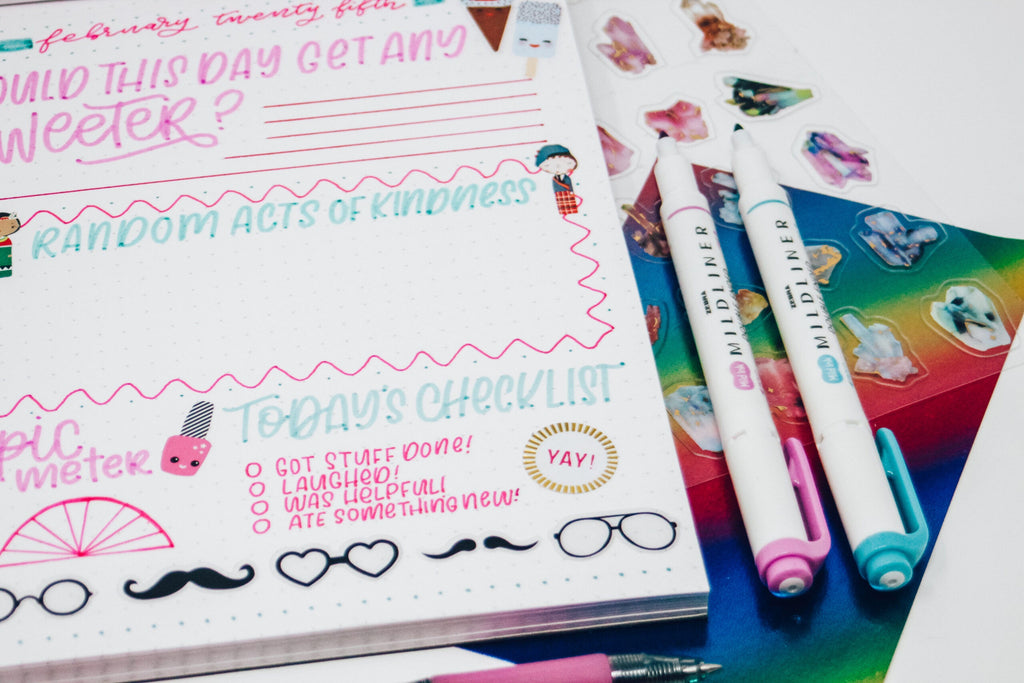 february twenty fifth
OULD THIS DAY GET ANY
WEETER?
RANDOM ACTS OF KINDNESS
pic
meter
TODAY'S CHECKLIST
GOT STUFF DONE!
LAUGHED!
WAS HELPFUL!
ATE SOMETHING NEW!
YAY!
ZEBRA
MILDLINER
ZEBRA
MILDLINER